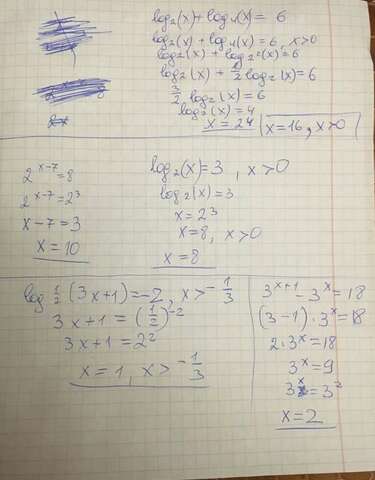 log₂(x)+log₄(x)= 6
log₂(x) + log₄(x)=6, x>0
log₂(x) + log₂²(x)=6
log₂(x) + 1/2 log₂(x)=6
3/2 log₂(x)=6
log₂(x)=4
x=2⁴ x=16, x>0
2ˣ⁻⁷=8
2ˣ⁻⁷=2³
x-7=3
x=10
log₂(x)=3, x>0
log₂(x)=3
x=2³
x=8, x>0
x=8
log 1/2 (3x+1)=-2, x>-1/3
3x+1=(1/2)⁻²
3x+1=2²
x=1, x>-1/3
3ˣ⁺¹-3ˣ=18
(3-1)·3ˣ=18
2·3ˣ=18
3ˣ=9
3ˣ=3²
x=2